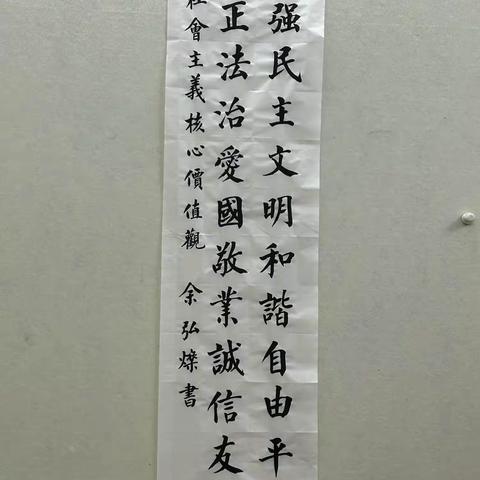 强民主文明和諧自由平
正法治愛國敬業誠信友
社會主義核心價值觀 余弘燦書